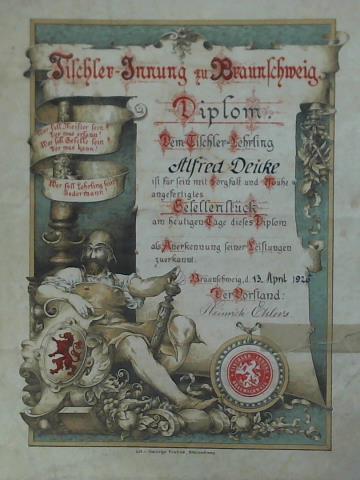 Tischler-Innung zu Braunschweig.
Wer soll Meister sein
Der was ersann!
Wer soll Geselle sein
Der was kann!
Wer soll Lehrling sein?
Jedermann!
Diplom.
Dem Tischler-Lehrling
Alfred Deuke
ist für sein mit Sorgfalt und Mühe
angefertigtes
Gesellenstück
am heutigen Tage dieses Diplom
als Anerkennung seiner Leistungen
zuerkannt.
Braunschweig, d. 13. April 1926
Der Vorstand:
Heinrich Ehlers
TISCHLER INNUNG
BRAUNSCHWEIG
Lith. George Braunschweig